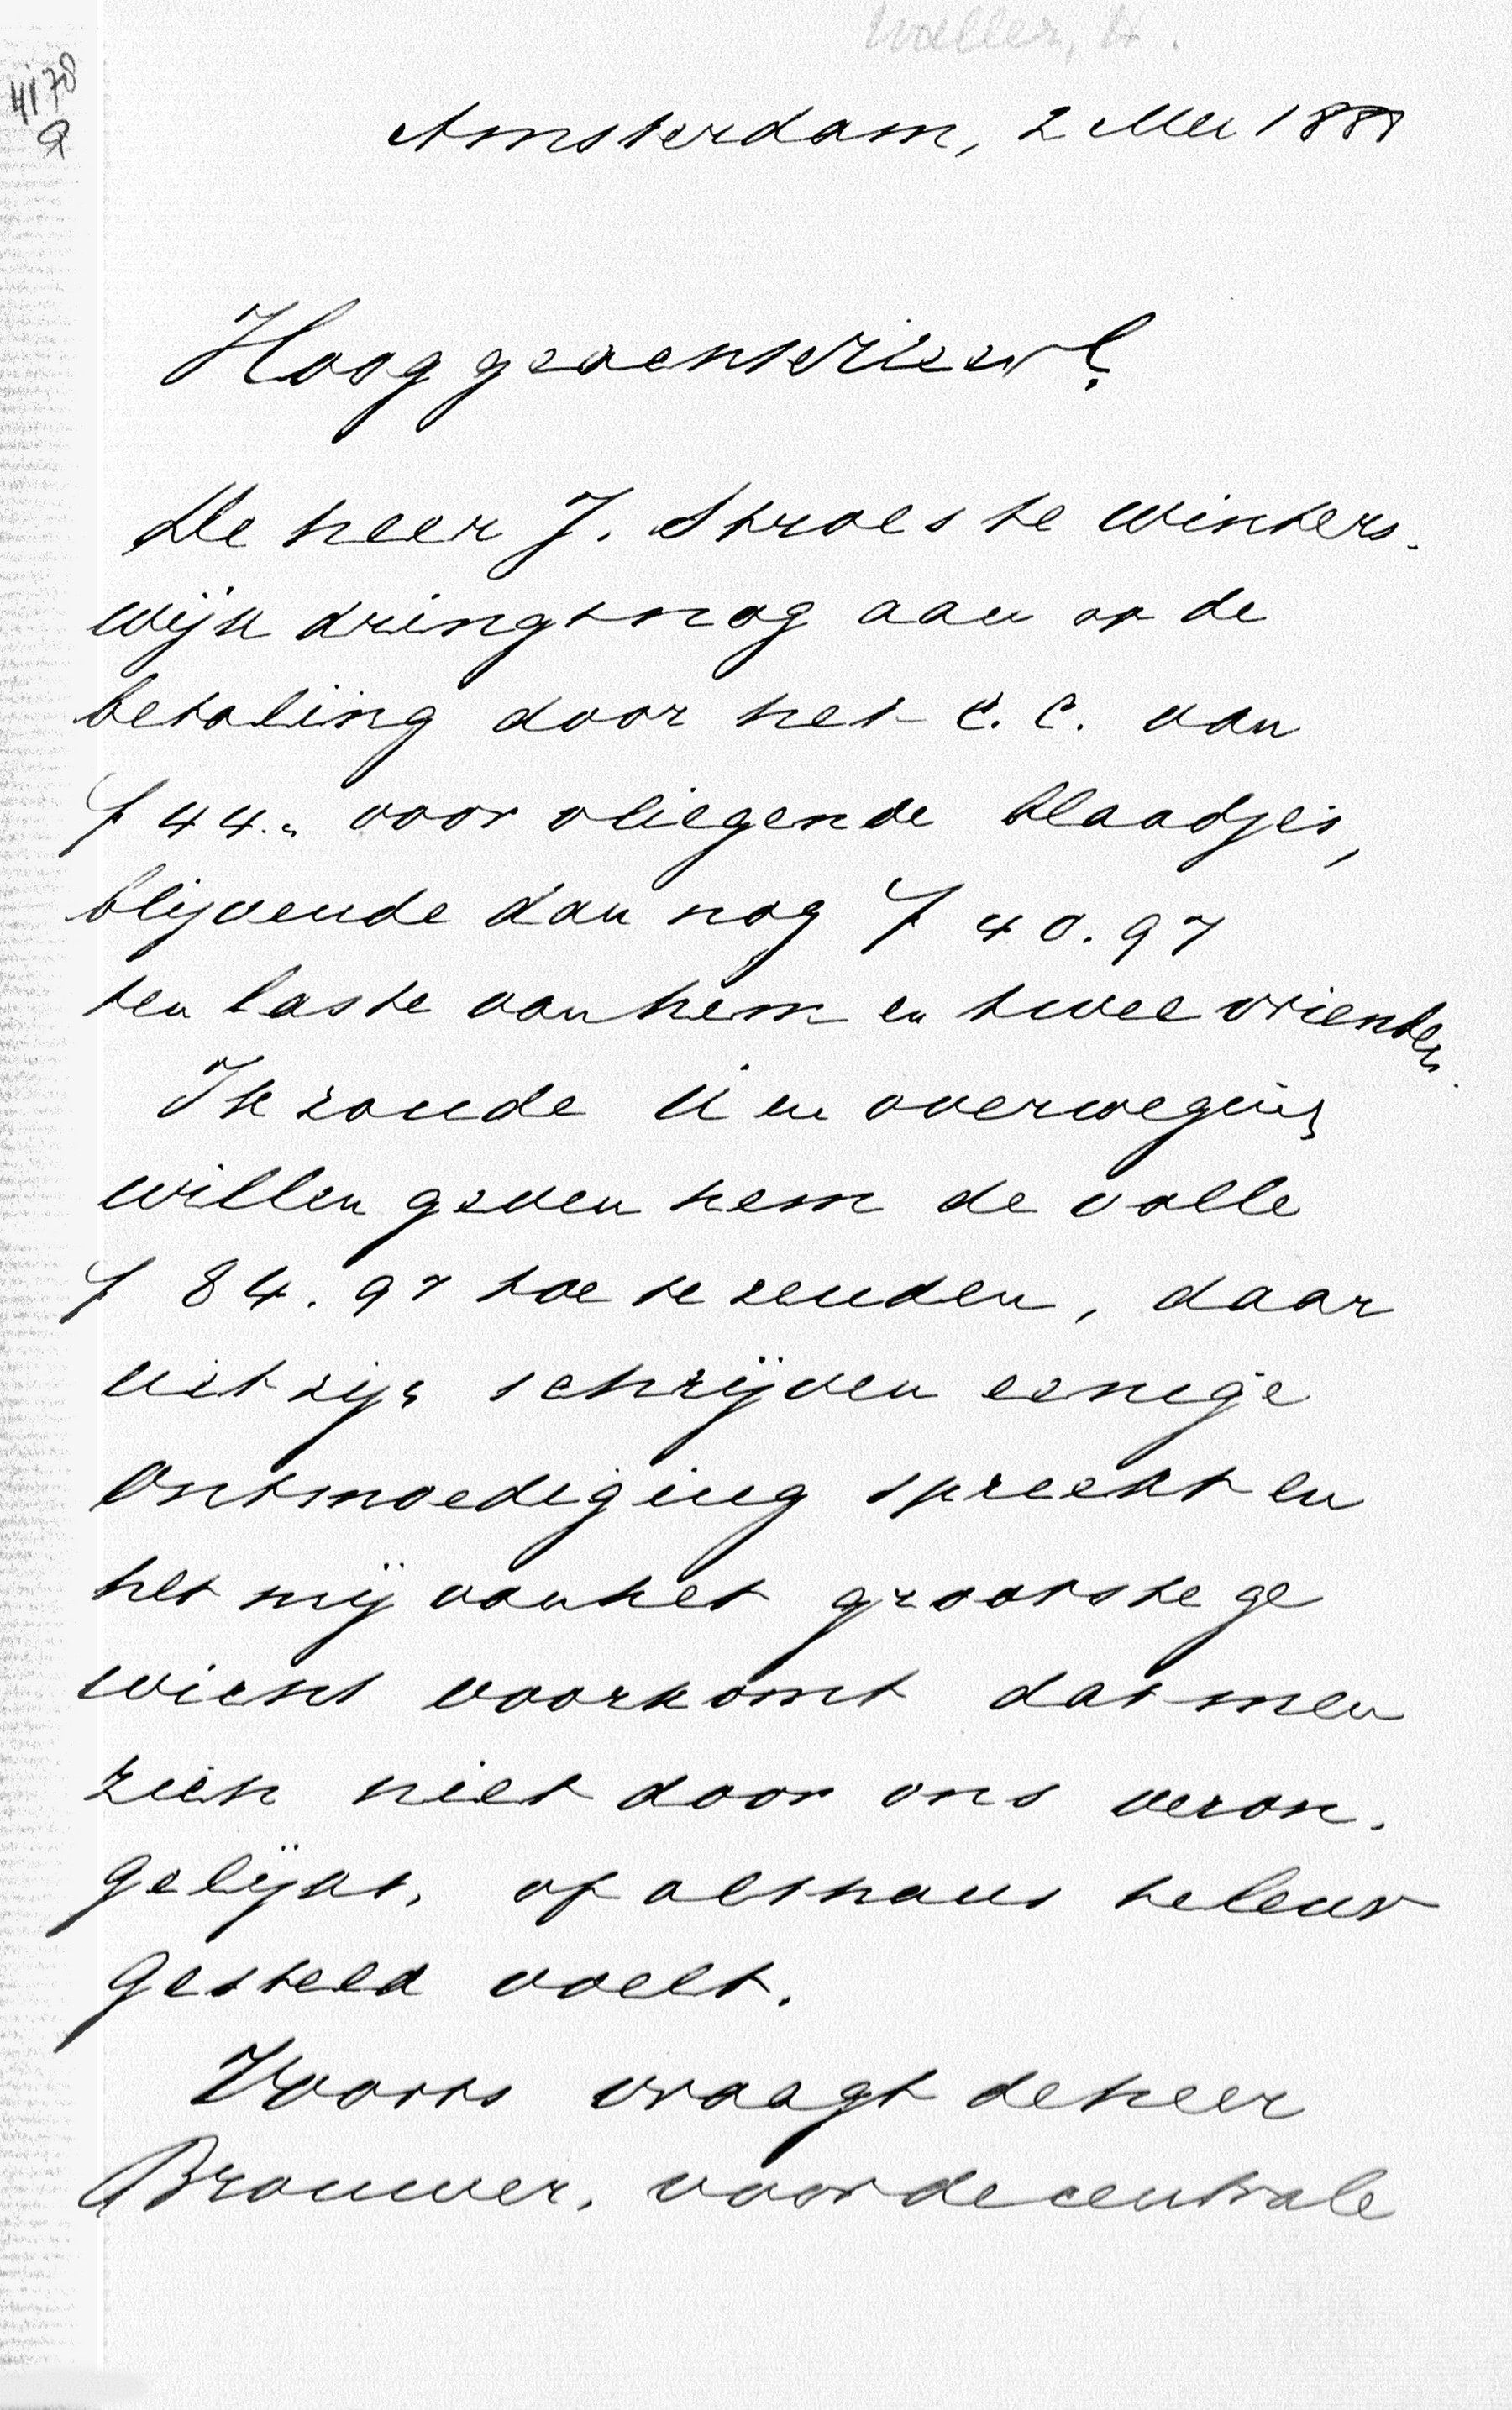 Waller, H.
4170
Amsterdam, 2 Mei 1881
Hooggeachte Vriend!
De heer J. Stroes te Winters-
wijk dringt nog aan op de
betaling door het C. C. van
f 44.- voor vliegende blaadjes,
blijvende dan nog f 40.97
ten laste van hem en twee vrienden.
Ik zoude U in overweging
willen geven hem de volle
f 84.97 toe te zenden, daar
uit zijn schrijven eenige
Ontmoediging spreekt en
het mij van het grootste ge
wicht voorkomt dat men
zich niet door ons veron-
gelijkt, of althans teleur
gesteld voelt.
Voorts vraagt de heer
Brouwer, voor de centrale